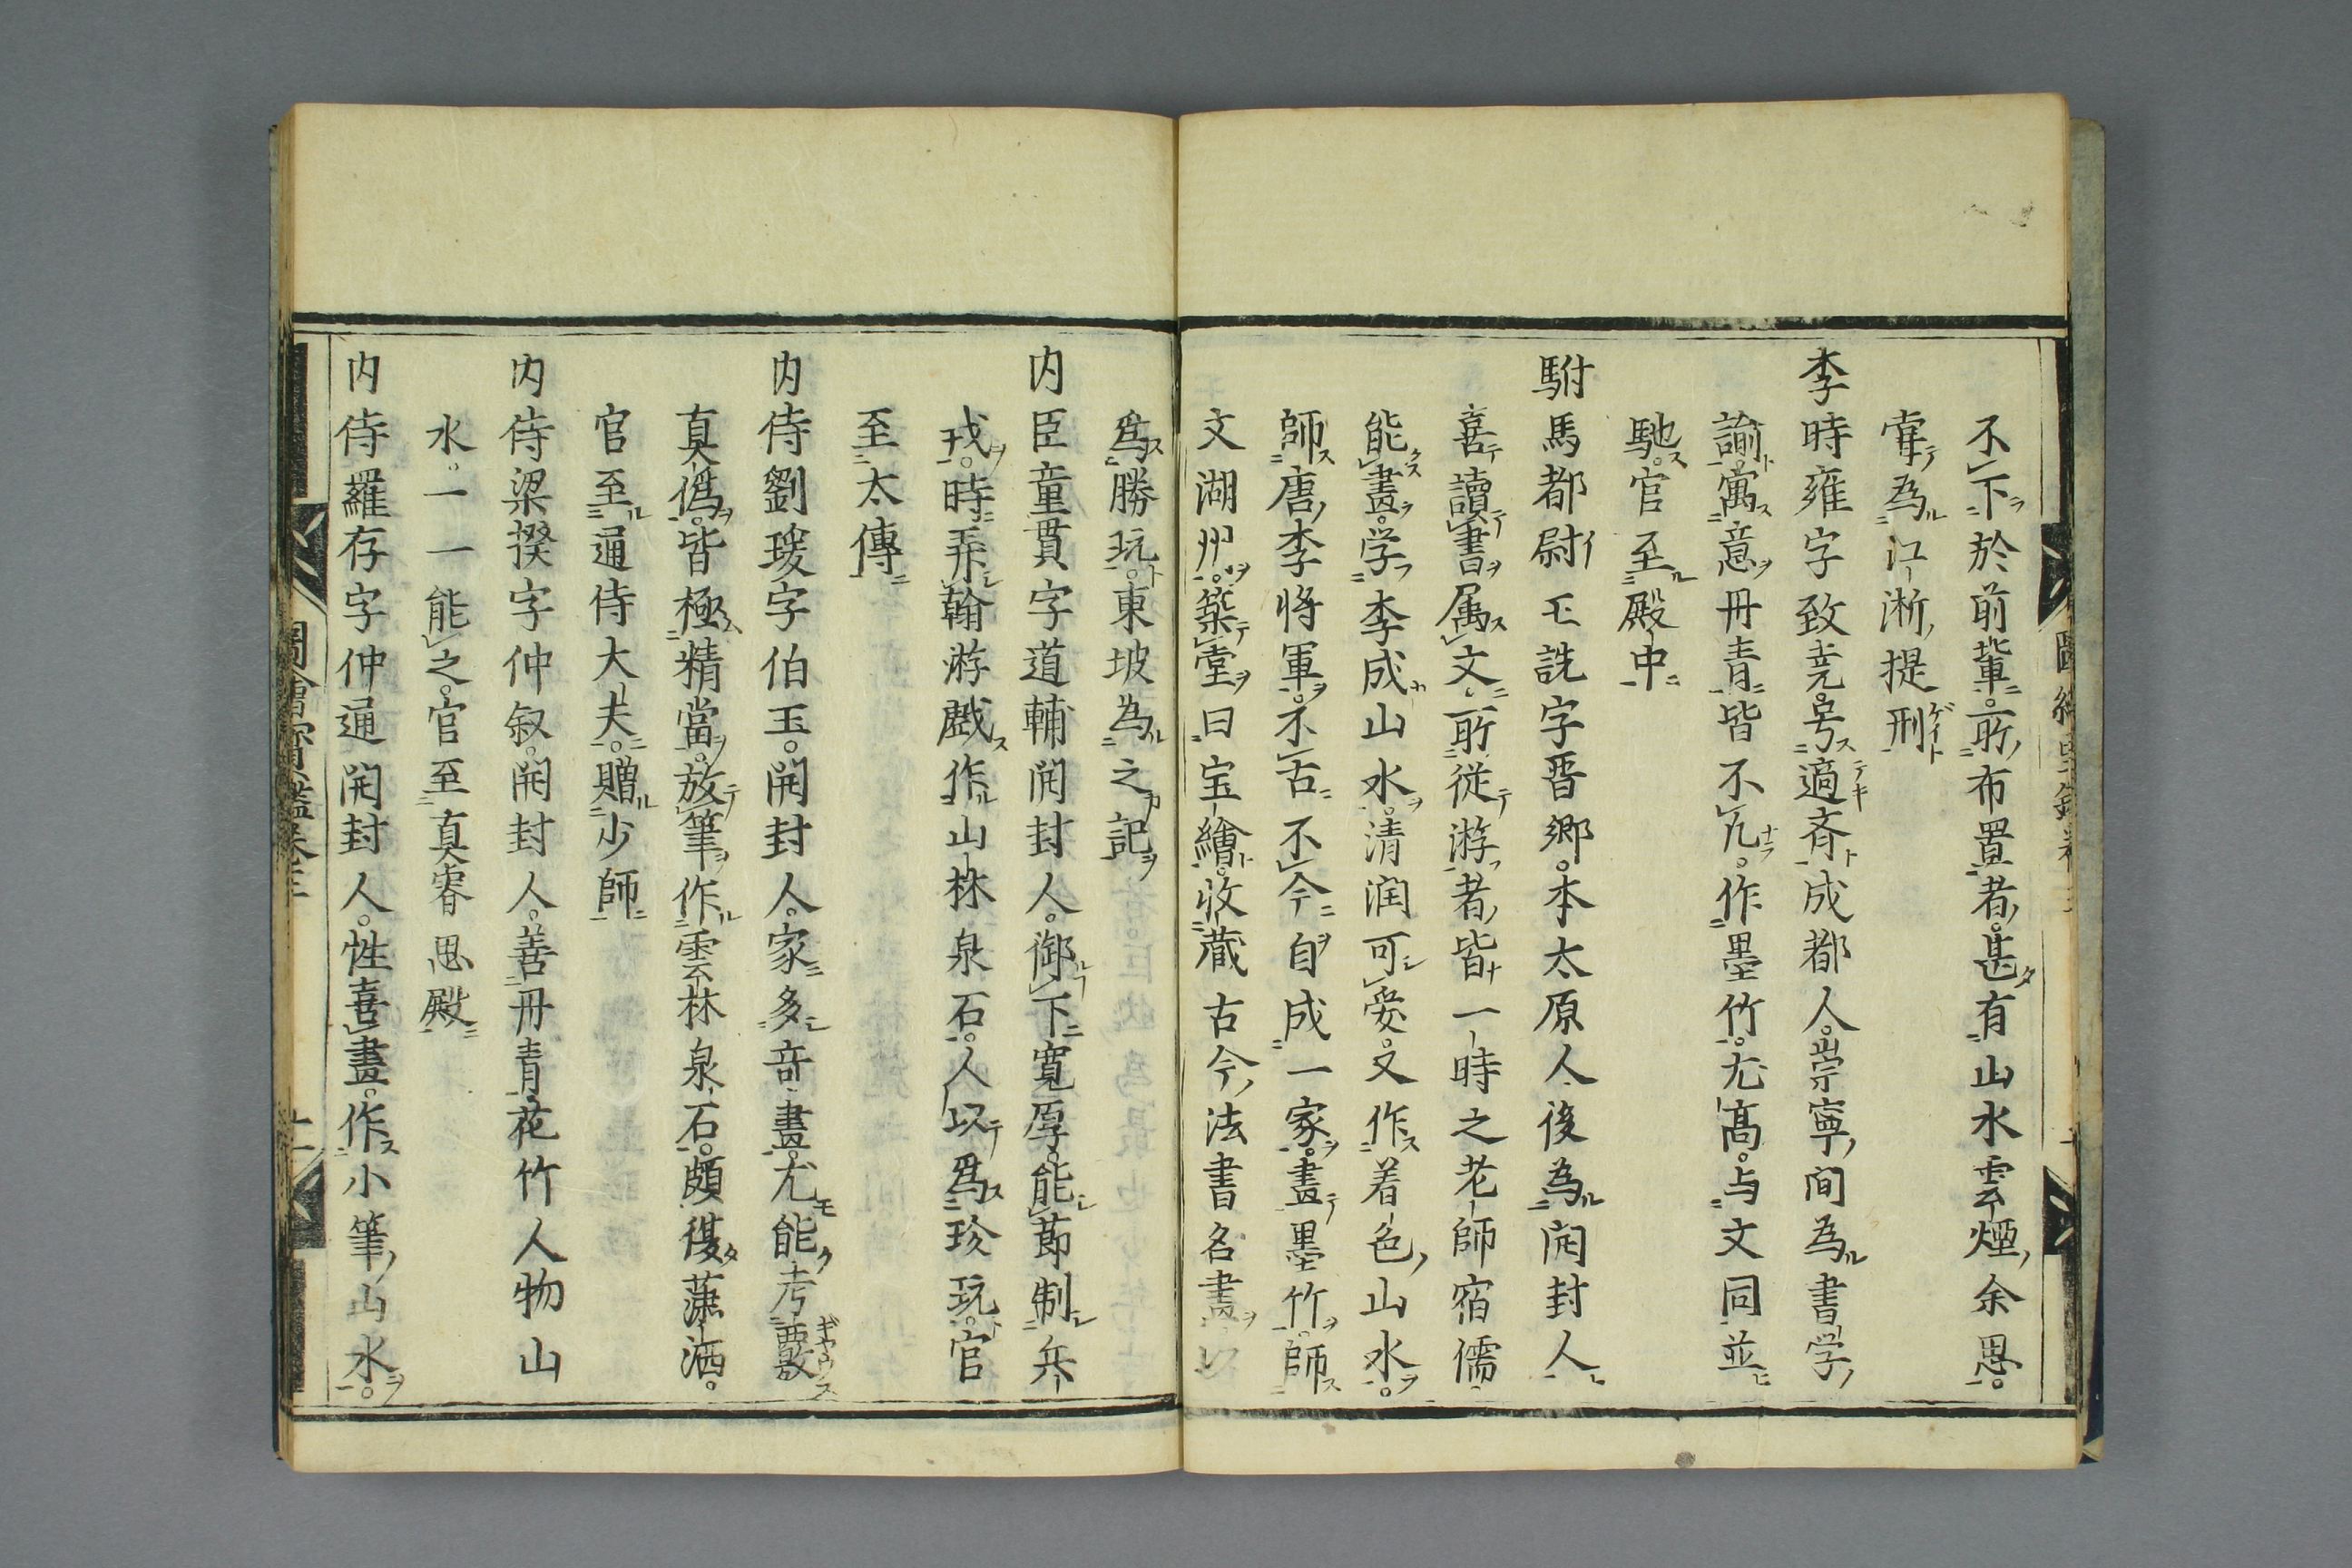 不下於前輩所布置者甚有山水雲煙余思
嘗為江淅提刑
李時雍字致尭号適斉成都人崇寧間為書学
諭寓意丹青皆不凡作墨竹尤髙与文同並
馳官至殿中
駙馬都尉王詵字晋卿本太原人後為開封人
喜讀書属文所従游者皆一時之老師宿儒
能畫学李成山水清润可爱又作着色山水
師唐李将軍不古不今自成一家畫墨竹師
文湖州築堂曰宝繪收蔵古今法書名畫以
爲勝玩東坡為之記
内臣童貫字道輔開封人御下寛厚能莭制兵
戎時弄翰游戯作山林泉石人以爲珍玩官
至太傳
内侍劉瑗字伯玉開封人家多竒畫尤能考覈
真偽皆極精當放筆作雲林泉石頗復蕭洒
官至通侍大夫贈少師
内侍梁揆字仲叙開封人善丹青花竹人物山
水一一能之官至真睿思殿
内侍羅存字仲通開封人性喜畫作小筆山水
圖繪寳鑑巻三